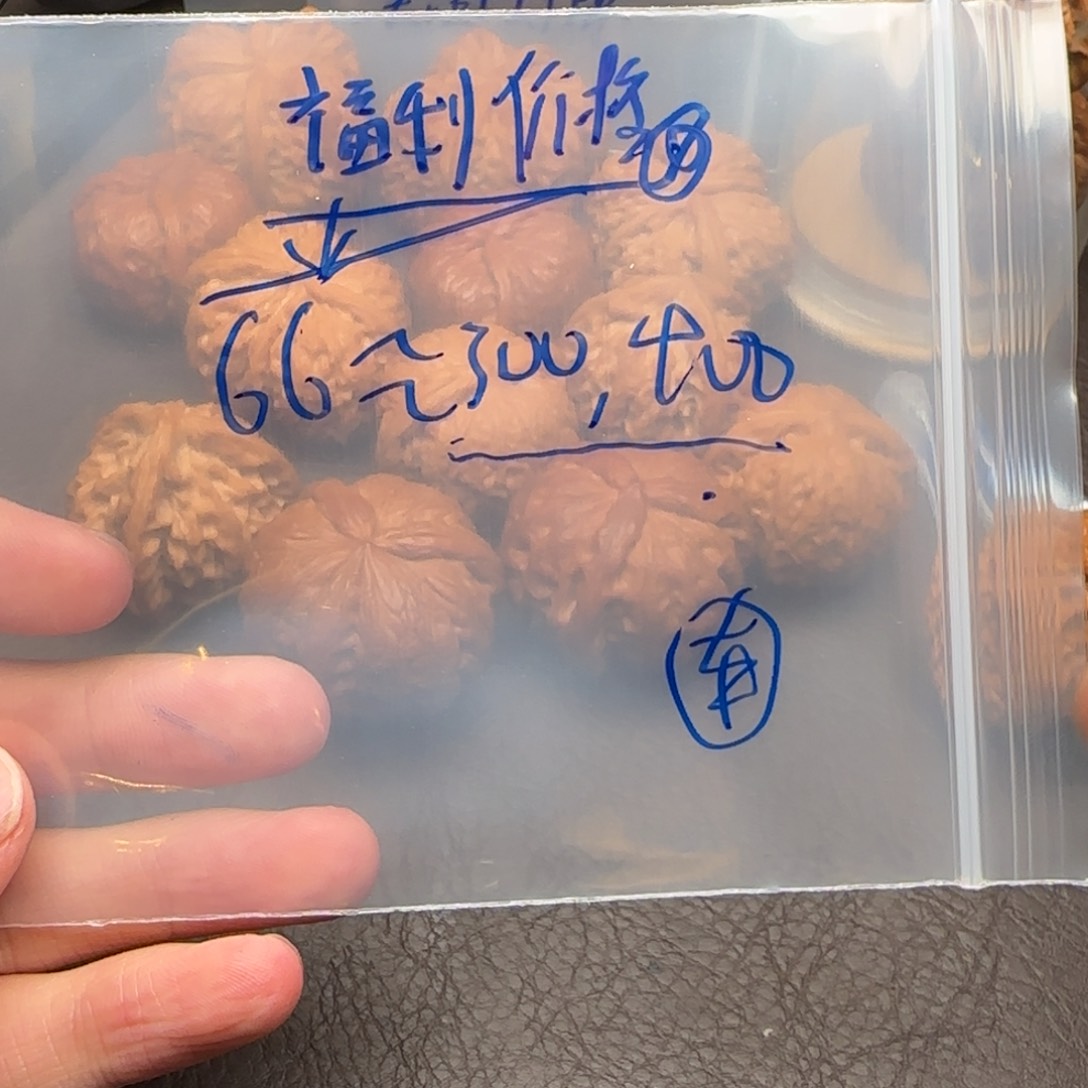 福利价格
66≈300,400
有